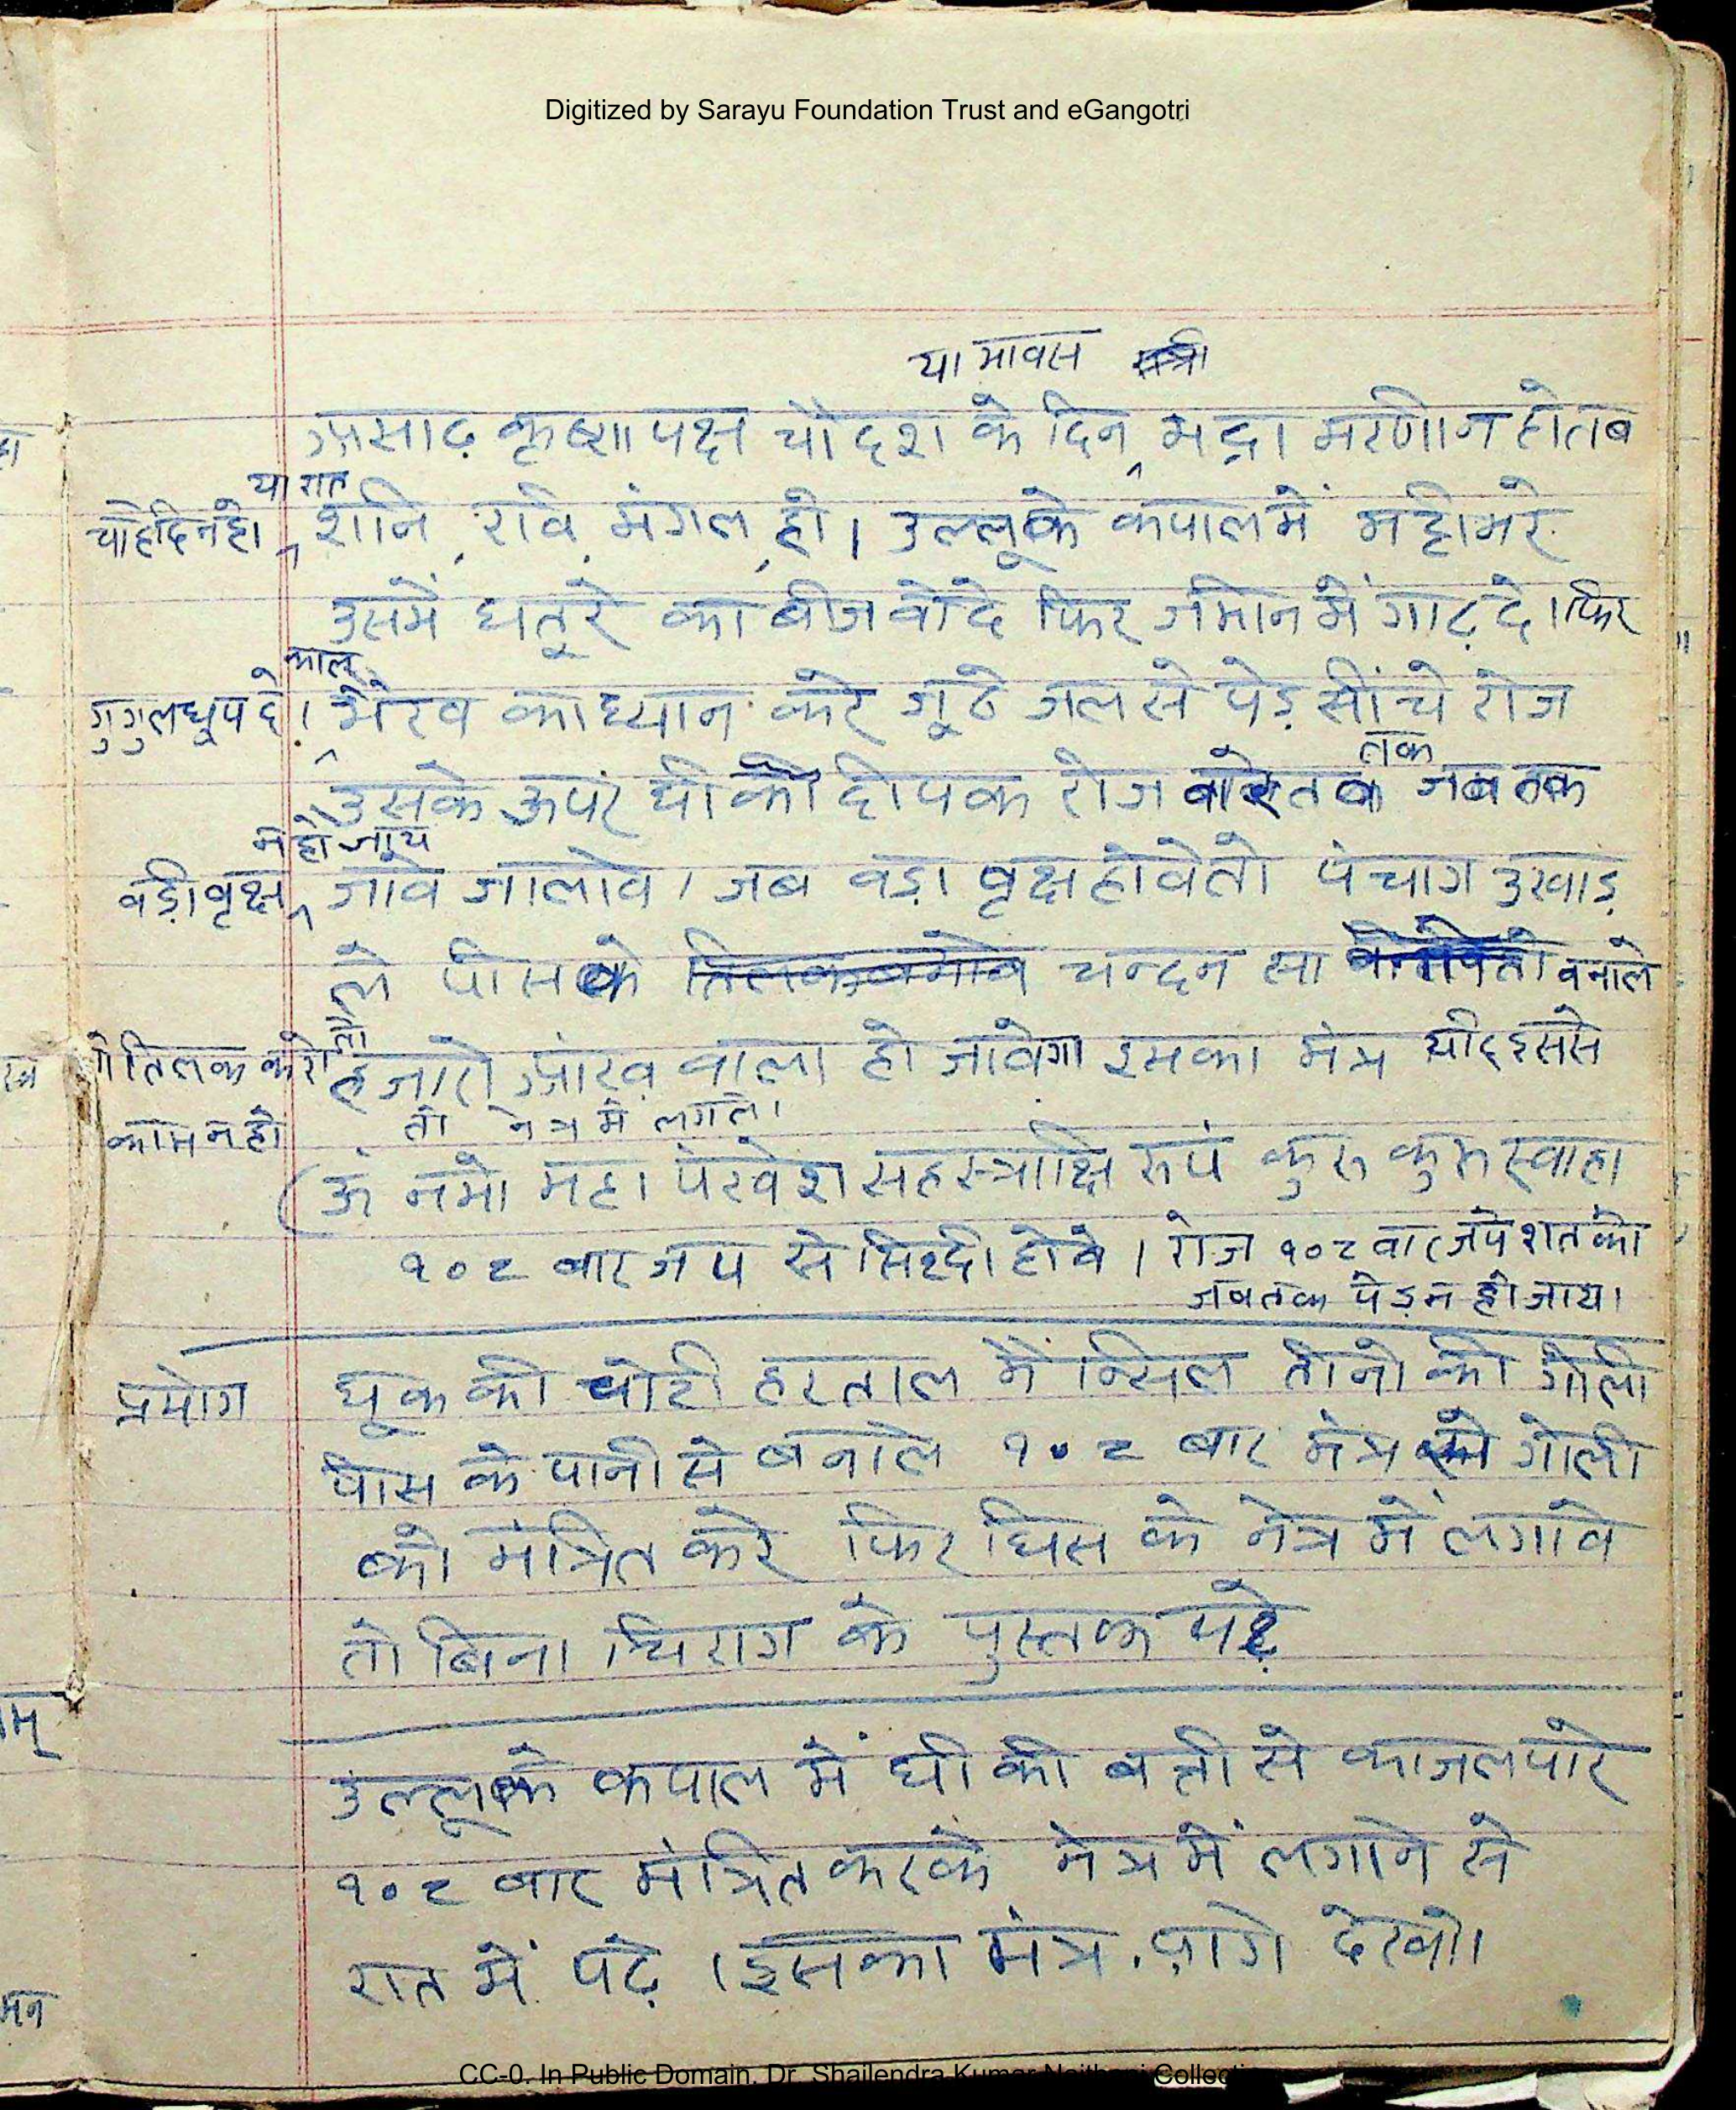 Digitized by Sarayu Foundation Trust and eGangotri
या मावस
असाढ़ कृष्ण पक्ष चौदश के दिन भद्रा भरणी न हो तब
या रात
चाहे दिन हो शनि, रवि, मंगल, हो। उल्लू के कपाल में मट्टी भरे
उसमें धतूरे का बीज वोदे फिर जमीन में गाढ़ दे। फिर
काल
गुगुल धूप दे। भैरव का ध्यान करे जूठे जल से पेड़ सींचे रोज
तक
उसके ऊपर घी को दीपक रोज वारे जब तक
न हो जाय
वड़ा वृक्ष जब वड़ा वृक्ष होवे तो पंचाग उखाड़
ले पीसके चन्दन सा वनाले
तो
तिलक करे हजारो आंख वाला हो जावेगा इसका मंत्र यदि इससे
काम न हो तो नेत्र में लगाले।
(ॐ नमो महा सहस्त्राक्षि रुपं कुरु कुरु स्वाहा
१०८ बार जप से सिद्दी होवे। रोज १०८ वार जपे रात को
जब तक पेड़ न हो जाय।
प्रयोग घूक की चोटी हरताल मैन्सिल तीनो की गोली
पीस के पानी से बनाले १०८ बार मंत्र से गोली
को मंत्रित करे फिर घिस के नेत्र में लगावे
तो बिना चिराग के पुस्तक पढ़े
उल्लू के कपाल में घी की बत्ती से काजल पारे
१०८ बार मंत्रित करके नेत्र में लगाने से
रात में पढ़े। इसका मंत्र आगे देखो।
CC-0. In Public Domain. Dr. Shailendra Kumar Naithani